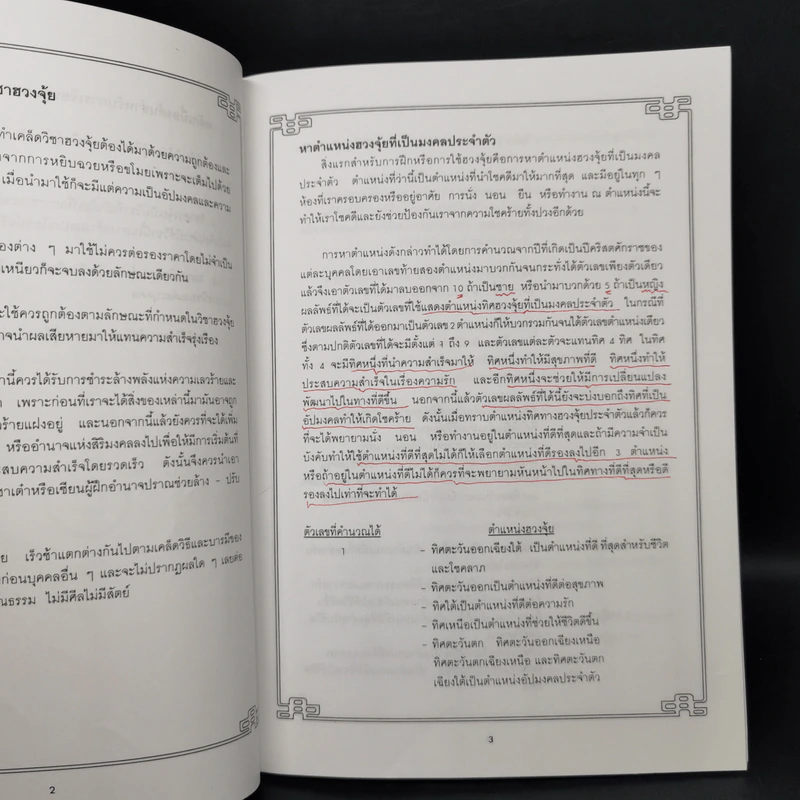 ชาฮวงจุ้ย
ทำเคล็ดวิชาฮวงจุ้ยต้องได้มาด้วยความถูกต้องและ
จากการหยิบฉวยหรือขโมยเพราะจะเต็มไปด้วย
เมื่อนำมาใช้ก็จะมีแต่ความเป็นอัปมงคลและความ
องต่าง ๆ มาใช้ไม่ควรต่อรองราคาโดยไม่จำเป็น
เหนียวก็จะจบลงด้วยลักษณะเดียวกัน
ะใช้ควรถูกต้องตามลักษณะที่กำหนดในวิชาฮวงจุ้ย
าจนำผลเสียหายมาให้แทนความสำเร็จรุ่งเรือง
านี้ควรได้รับการชำระล้างพลังแห่งความเลวร้ายและ
เพราะก่อนที่เราจะได้สิ่งของเหล่านี้มามันอาจถูก
วร้ายแฝงอยู่ และนอกจากนี้แล้วยังควรที่จะได้เพิ่ม
หรืออำนาจแห่งสิริมงคลลงไปเพื่อให้มีการเริ่มต้นที่
ะสบความสำเร็จโดยรวดเร็ว ดังนั้นจึงควรนำเอา
ชาเต๋าหรือเซียนผู้ฝึกอำนาจปราณช่วยล้าง - ปรับ
ย เร็วช้าแตกต่างกันไปตามเคล็ดวิธีและบารมีของ
ยก่อนบุคคลอื่น ๆ และจะไม่ปรากฏผลใด ๆ เลยต่อ
ณธรรม ไม่มีศีลไม่มีสัตย์
2
หาตำแหน่งฮวงจุ้ยที่เป็นมงคลประจำตัว
สิ่งแรกสำหรับการฝึกหรือการใช้ฮวงจุ้ยคือการหาตำแหน่งฮวงจุ้ยที่เป็นมงคล
ประจำตัว ตำแหน่งที่ว่านี้เป็นตำแหน่งที่นำโชคดีมาให้มากที่สุด และมีอยู่ในทุก ๆ
ห้องที่เราครอบครองหรืออยู่อาศัย การนั่ง นอน ยืน หรือทำงาน ณ ตำแหน่งนี้จะ
ทำให้เราโชคดีและยังช่วยป้องกันเราจากความโชคร้ายทั้งปวงอีกด้วย
การหาตำแหน่งดังกล่าวทำได้โดยการคำนวณจากปีที่เกิดเป็นปีคริสตศักราชของ
แต่ละบุคคลโดยเอาเลขท้ายสองตำแหน่งมาบวกกันจนกระทั่งได้ตัวเลขเพียงตัวเดียว
แล้วจึงเอาตัวเลขที่ได้มาลบออกจาก 10 ถ้าเป็นชาย หรือนำมาบวกด้วย 5 ถ้าเป็นหญิง
ผลลัพธ์ที่ได้จะเป็นตัวเลขที่ใช้แสดงตำแหน่งทิศฮวงจุ้ยที่เป็นมงคลประจำตัว ในกรณีที่
ตัวเลขผลลัพธ์ที่ได้ออกมาเป็นตัวเลข 2 ตำแหน่งก็ให้บวกรวมกันจนได้ตัวเลขตำแหน่งเดียว
ซึ่งตามปกติตัวเลขที่ได้จะมีตั้งแต่ 1 ถึง 9 และตัวเลขแต่ละตัวจะแทนทิศ 4 ทิศ ในทิศ
ทั้ง 4 จะมีทิศหนึ่งที่นำความสำเร็จมาให้ ทิศหนึ่งทำให้มีสุขภาพที่ดี ทิศหนึ่งทำให้
ประสบความสำเร็จในเรื่องความรัก และอีกทิศหนึ่งจะช่วยให้มีการเปลี่ยนแปลง
พัฒนาไปในทางที่ดีขึ้น นอกจากนี้แล้วตัวเลขผลลัพธ์ที่ได้นี้ยังจะบ่งบอกถึงทิศที่เป็น
อัปมงคลทำให้เกิดโชคร้าย ดังนั้นเมื่อทราบตำแหน่งทิศทางฮวงจุ้ยประจำตัวแล้วก็ควร
ที่จะได้พยายามนั่ง นอน หรือทำงานอยู่ในตำแหน่งที่ดีที่สุดและถ้ามีความจำเป็น
บังคับทำให้ใช้ตำแหน่งที่ดีที่สุดไม่ได้ก็ให้เลือกตำแหน่งที่ดีรองลงไปอีก 3 ตำแหน่ง
หรือถ้าอยู่ในตำแหน่งที่ดีไม่ได้ก็ควรที่จะพยายามหันหน้าไปในทิศทางที่ดีที่สุดหรือดี
รองลงไปเท่าที่จะทำได้
ตัวเลขที่คำนวณได้ ตำแหน่งฮวงจุ้ย
1 - ทิศตะวันออกเฉียงใต้ เป็นตำแหน่งที่ดีที่สุดสำหรับชีวิต
และโชคลาภ
- ทิศตะวันออกเป็นตำแหน่งที่ดีต่อสุขภาพ
- ทิศใต้เป็นตำแหน่งที่ดีต่อความรัก
- ทิศเหนือเป็นตำแหน่งที่ช่วยให้ชีวิตดีขึ้น
- ทิศตะวันตก ทิศตะวันออกเฉียงเหนือ
ทิศตะวันตกเฉียงเหนือ และทิศตะวันตก
เฉียงใต้เป็นตำแหน่งอัปมงคลประจำตัว
3